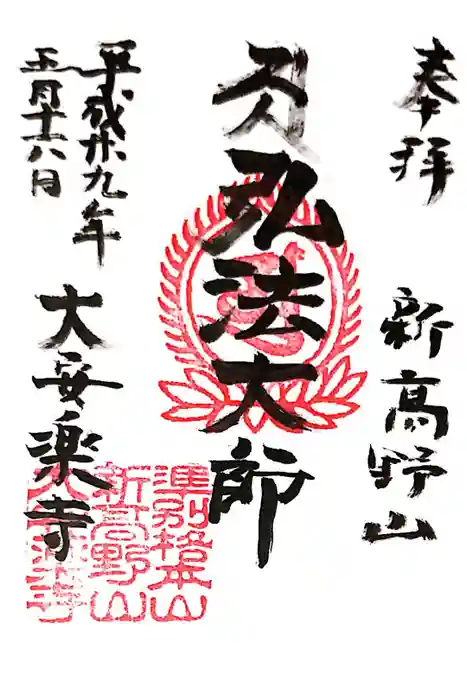 奉拝
新高野山
弘法大師
平成廿九年
五月十八日
大安楽寺
準別格本山
新高野山
大安楽寺